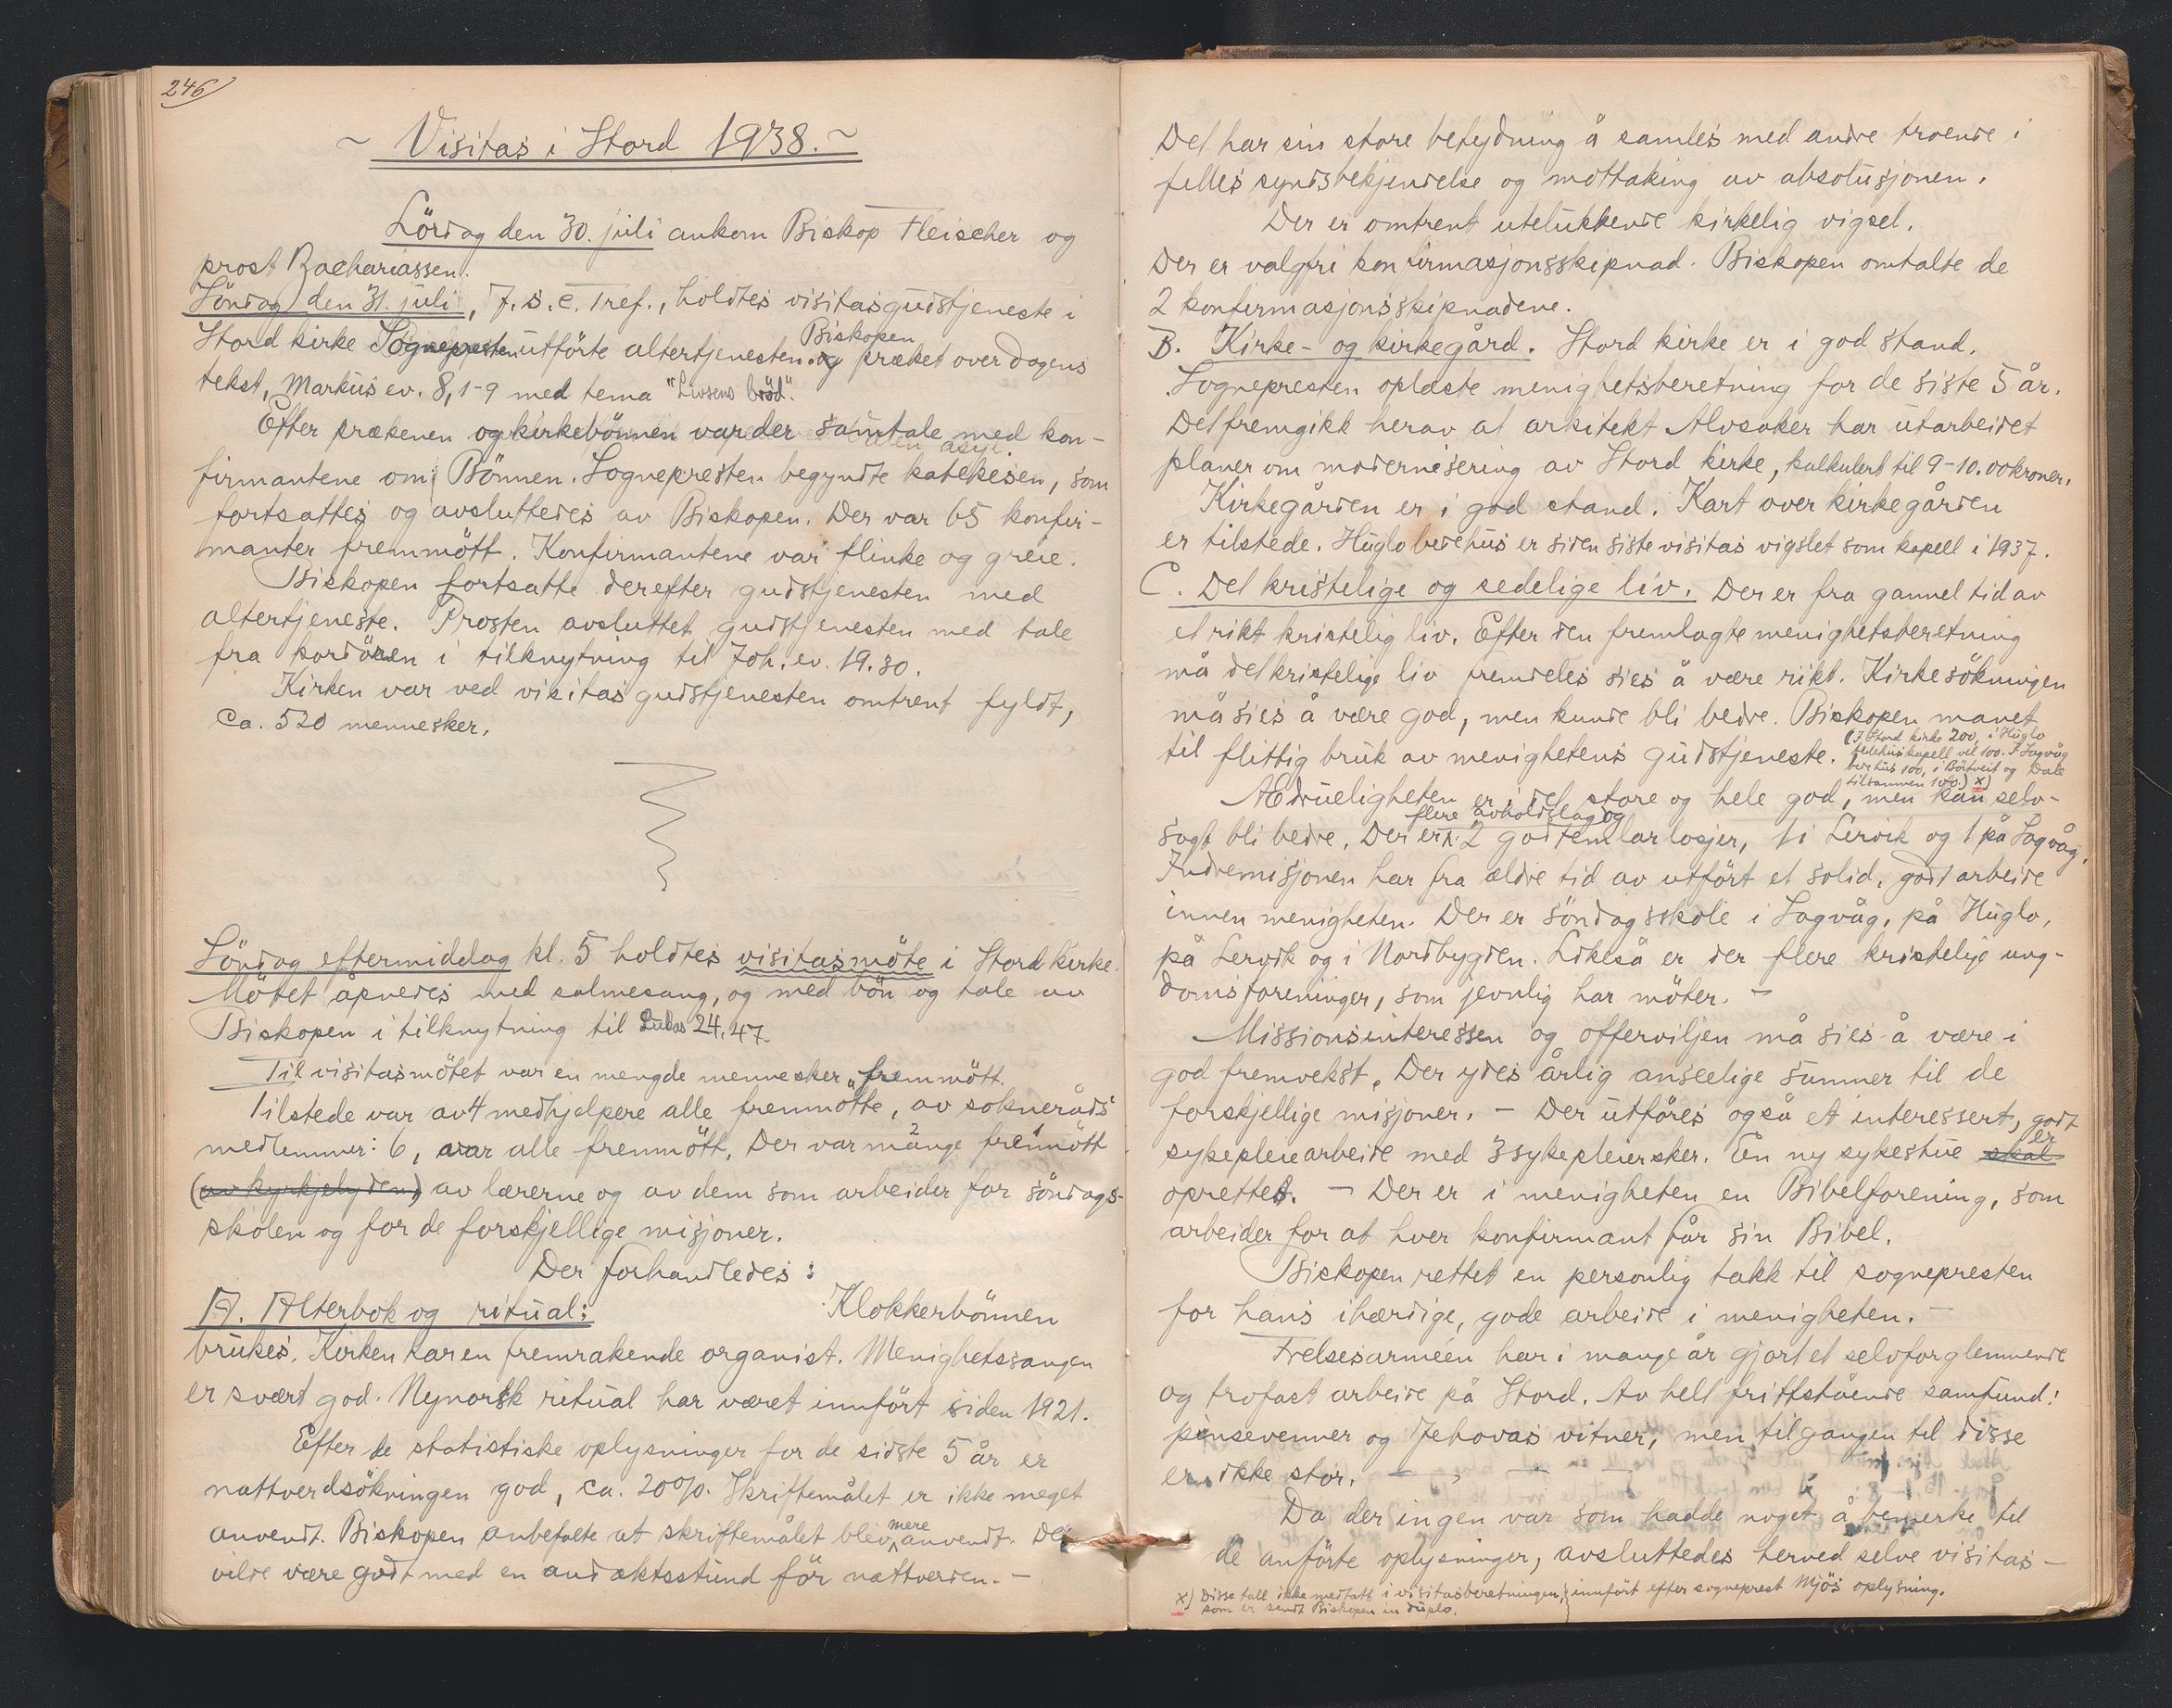 246
~ Visitas i Stord 1938. ~
Lördag den 30. juli ankom Biskop Fleischer og
prost Zachariassen.
Söndag den 31. juli, 7. s. e. Tref., holdtes visitasgudstjeneste i
Stord kirke Sognepresten utförte altertjenesten. og Biskopen præket over dagens
tekst, Markus ev. 8, 1-9 med tema "Livsens bröd".
Efter prækenen og kirkebönnen var der samtale med kon-
firmantene om: Bönnen. Sognepresten begyndte katekesen, som
fortsattes og avsluttedes av Biskopen. Der var 65 konfir-
manter fremmött. Konfirmantene var flinke og greie.
Biskopen fortsatte derefter gudstjenesten med
altertjeneste. Prosten avsluttet gudstjenesten med tale
fra kordören i tilknytning til Joh. ev. 19.30.
Kirken var ved visitasgudstjenesten omtrent fyldt,
ca. 520 mennesker.
Söndag eftermiddag kl. 5 holdtes visitasmöte i Stord kirke.
Mötet åpnedes med salmesang, og med bön og tale av
Biskopen i tilknytning til Lukas 24.47.
Til visitasmötet var en mengde mennesker fremmött.
Tilstede var av 4 medhjelpere alle fremmötte, av sokneråds
medlemmer: 6, var alle fremmött. Der var mange fremmött
(av kyrkjelyden) av lærerne og av dem som arbeider for söndags-
skolen og for de forskjellige misjoner.
Der forhandledes:
A. Alterbok og ritual: Klokkerbönnen
brukes. Kirken har en fremrakende organist. Menighetssangen
er svært god. Nynorsk ritual har været innfört siden 1921.
Efter de statistiske oplysninger for de sidste 5 år er
nattverdsökningen god, ca. 20%. Skriftemålet er ikke meget
anvendt. Biskopen anbefalte at skriftemålet blev mere anvendt. Det
vilde være godt med en andaktsstund för nattverden. -
Det har sin store betydning å samles med andre troende i
felles syndsbekjendelse og mottaking av absolusjonen.
Der er omtrent utelukkende kirkelig vigsel.
Der er valgfri konfirmasjonsskipnad. Biskopen omtalte de
2 konfirmasjonsskipnadene.
B. Kirke- og kirkegård. Stord kirke er i god stand.
Sognepresten oplæste menighetsberetning for de siste 5 år.
Det fremgikk herav at arkitekt Alvsaker har utarbeidet
planer om modernisering av Stord kirke, kalkulert til 9-10.00 kroner.
Kirkegården er i god stand. Kart over kirkegården
er tilstede. Huglo bedehus er siden siste visitas vigslet som kapell i 1937.
C. Det kristelige og sedelige liv. Der er fra gammel tid av
et rikt kristelig liv. Efter den fremlagte menighetsberetning
må det kristelige liv fremdeles sies å være rikt. Kirkesökningen
må sies å være god, men kunde bli bedre. Biskopen manet
til flittig bruk av menighetens gudstjeneste. (I Stord kirke 200, i Huglo
bedehuskapell vel 100. I Sagvåg
bedhus 100, i Börtveit og Dale
tilsammen 100) x)
Ædrueligheten er i det store og hele god, men kan selv-
sagt bli bedre. Der er flere avholdslag og 2 godtemlarlosjer, 1 i Lervik og 1 på Sagvåg.
Indremisjonen har fra ældre tid av utfört et solid, godt arbeide
innen menigheten. Der er söndagsskole i Sagvåg, på Huglo,
på Lervik og i Nordbygden. Likeså er der flere kristelige ung-
domsforeninger, som jevnlig har möter. -
Missionsinteressen og offerviljen må sies å være i
god fremvekst. Der ydes årlig anseelige summer til de
forskjellige misjoner. - Der utföres også et interessert, godt
sykepleiearbeide med 3 sykepleiersker. En ny sykestue skal er
oprettet. - Der er i menigheten en Bibelforening, som
arbeider for at hver konfirmant får sin Bibel.
Biskopen rettet en personlig takk til sognepresten
for hans ihærdige, gode arbeide i menigheten. -
Frelsesarméen har i mange år gjort et selvforglemmende
og trofast arbeide på Stord. Av helt frittstående samfund:
pinsevenner og Jehovas vitner, men tilgangen til disse
er ikke stor. -
Da der ingen var som hadde noget å bemerke til
de anförte oplysninger, avsluttedes herved selve visitas-
x) Disse tall ikke medtatt i visitasberetningen, innfört efter sogneprest Mjös oplysning.
som er sendt Biskopen in duplo.